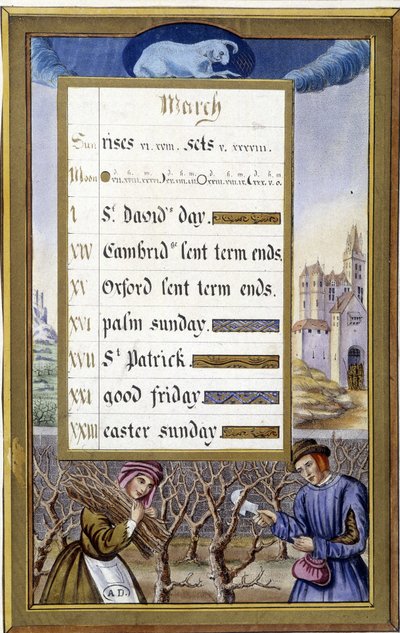 March
Sun rises VI. XVIII. sets V. XXXVIII.
Moon
I St David's day.
XIV Cambridge lent term ends.
XV Oxford lent term ends.
XVI palm sunday.
XVII St Patrick.
XXI good friday.
XXIII easter sunday.
A.D.